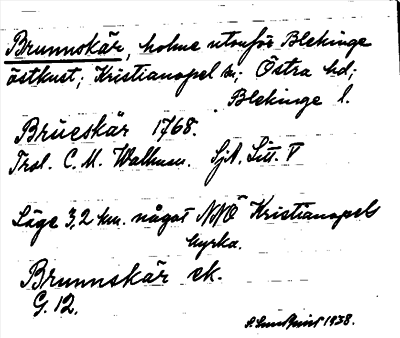 Brunnskär, holme utanför Blekinge
östkust; Kristianopel sn; Östra hd;
Blekinge l.
Brueskär 1768.
Trsl. C. M. Wallman. Sjk. Litt. V
Läge 3,2 km. något NNÖ Kristianopels
kyrka.
Brunnskär ek.
G. 12.
1938.